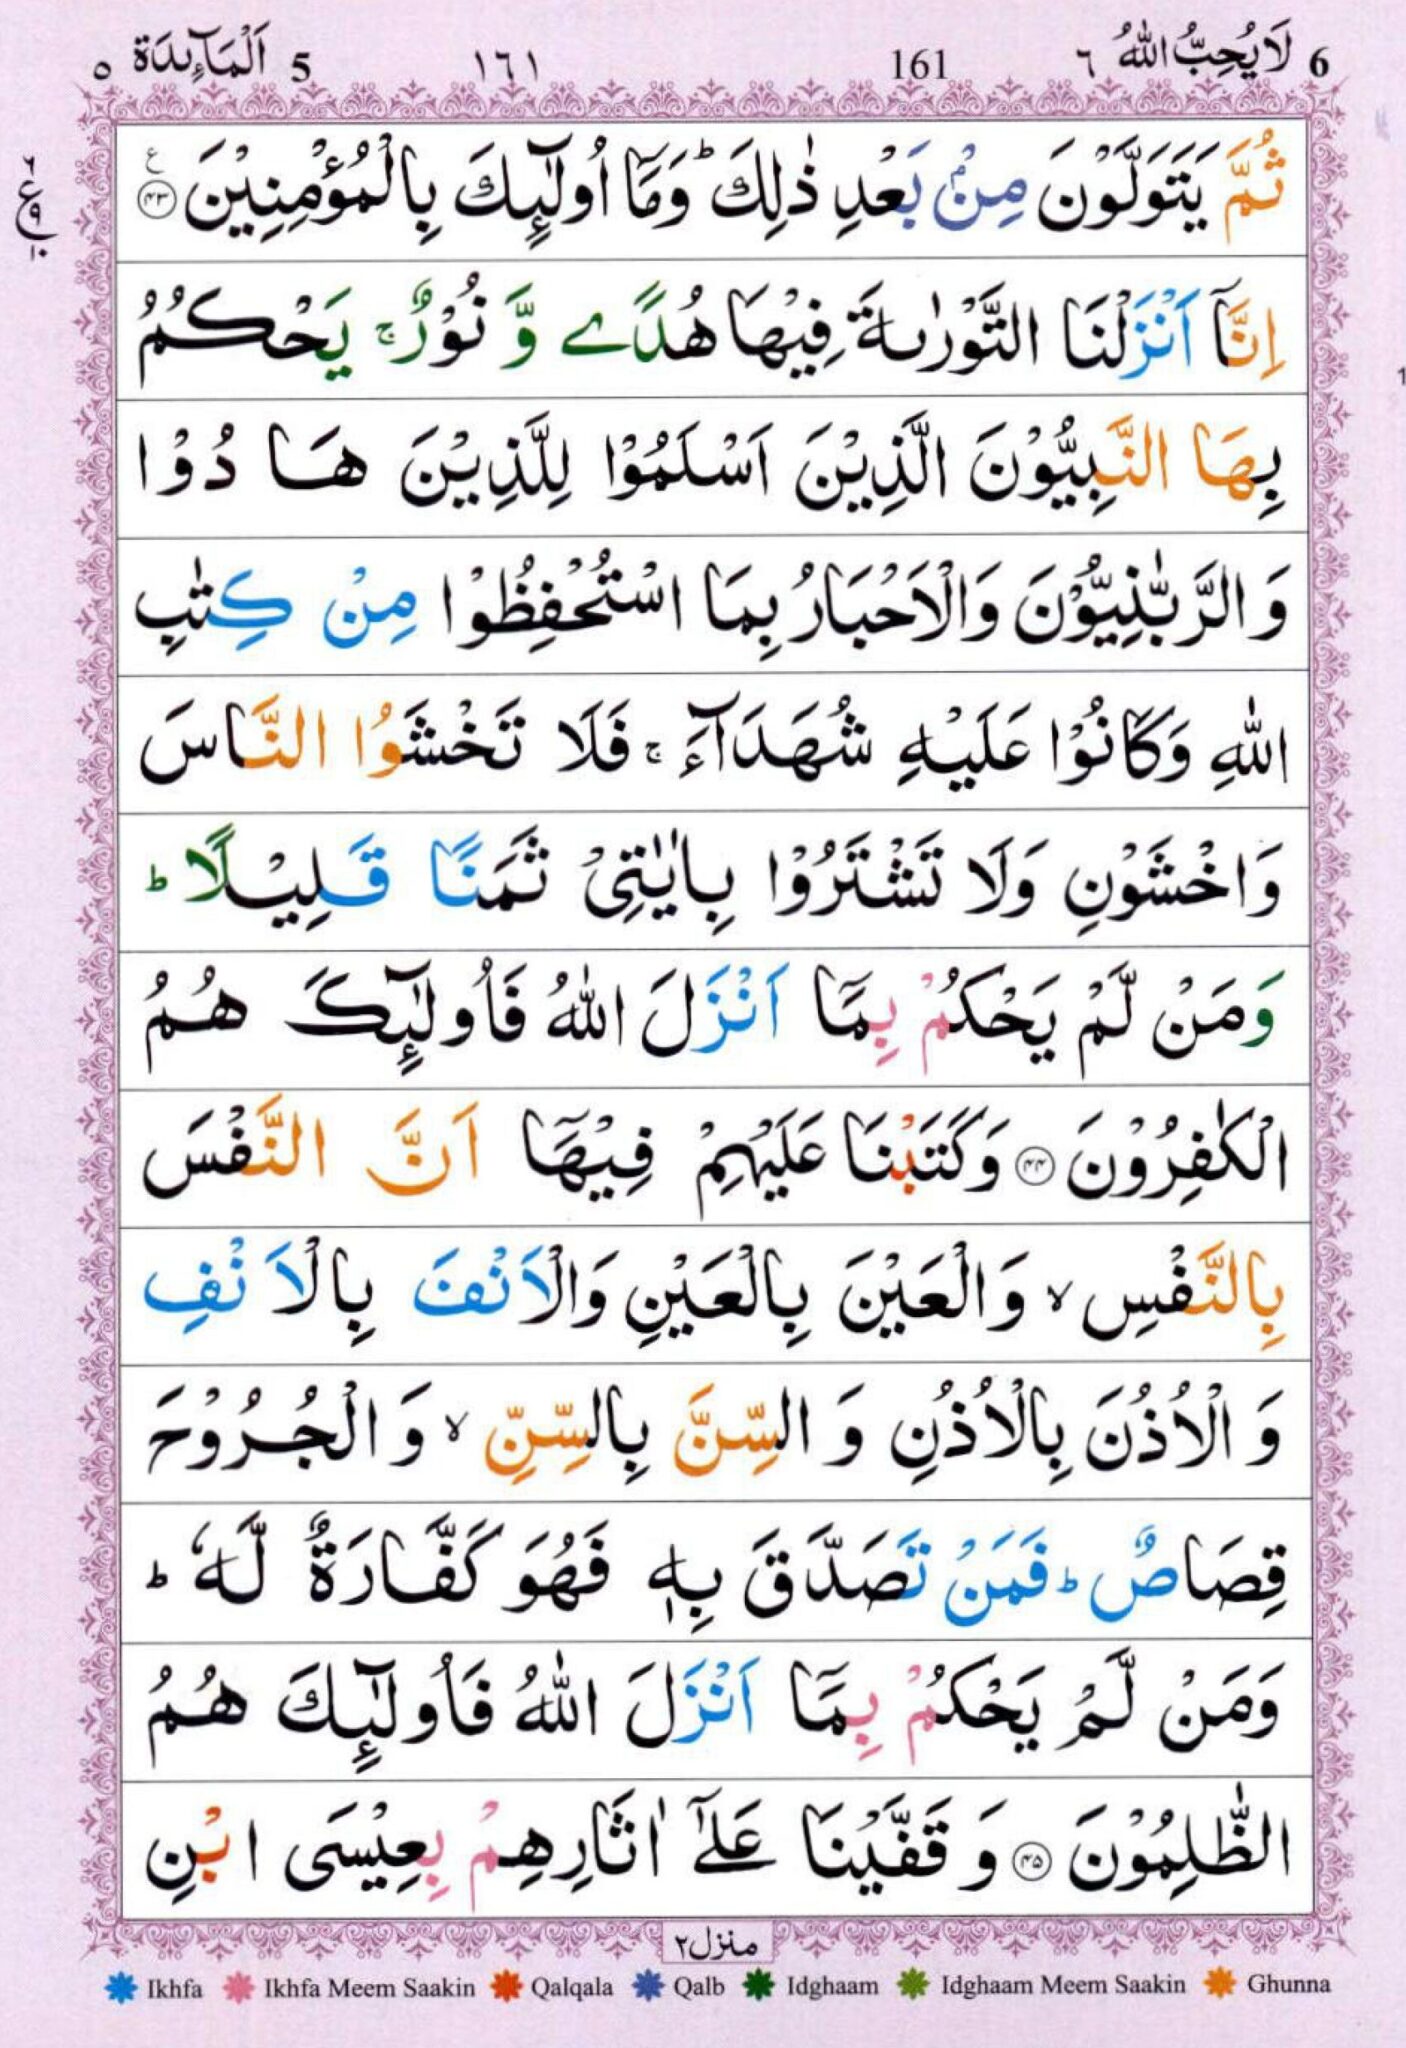 6 لَا يُحِبُّ اللّٰهُ ٦ 161 ١٦١ 5 اَلْمَآئِدَة ٥
ثُمَّ يَتَوَلَّوْنَ مِنْۢ بَعْدِ ذٰلِكَ ؕ وَمَاۤ اُولٰٓئِكَ بِالْمُؤْمِنِيْنَ ﴿۴۳﴾ ع
٦ ع ٩ ١٠
اِنَّاۤ اَنْزَلْنَا التَّوْرٰىةَ فِيْهَا هُدًى وَّ نُوْرٌ ۚ يَحْكُمُ
بِهَا النَّبِيُّوْنَ الَّذِيْنَ اَسْلَمُوْا لِلَّذِيْنَ هَا دُوْا
وَ الرَّبّٰنِيُّوْنَ وَالْاَحْبَارُ بِمَا اسْتُحْفِظُوْا مِنْ كِتٰبِ
اللّٰهِ وَكَانُوْا عَلَيْهِ شُهَدَآءَ ۚ فَلَا تَخْشَوُا النَّاسَ
وَاخْشَوْنِ وَلَا تَشْتَرُوْا بِاٰيٰتِىْ ثَمَنًا قَلِيْلًا ؕ
وَمَنْ لَّمْ يَحْكُمْ بِمَاۤ اَنْزَلَ اللّٰهُ فَاُولٰٓئِكَ هُمُ
الْكٰفِرُوْنَ ﴿۴۴﴾ وَكَتَبْنَا عَلَيْهِمْ فِيْهَاۤ اَنَّ النَّفْسَ
بِالنَّفْسِ ۙ وَالْعَيْنَ بِالْعَيْنِ وَالْاَنْفَ بِالْاَنْفِ
وَ الْاُذُنَ بِالْاُذُنِ وَ السِّنَّ بِالسِّنِّ ۙ وَ الْجُرُوْحَ
قِصَاصٌ ؕ فَمَنْ تَصَدَّقَ بِهٖ فَهُوَ كَفَّارَةٌ لَّهٗ ؕ
وَمَنْ لَّمْ يَحْكُمْ بِمَاۤ اَنْزَلَ اللّٰهُ فَاُولٰٓئِكَ هُمُ
الظّٰلِمُوْنَ ﴿۴۵﴾ وَ قَفَّيْنَا عَلٰٓى اٰثَارِهِمْ بِعِيْسَى ابْنِ
منزل ٢
Ikhfa Ikhfa Meem Saakin Qalqala Qalb Idghaam Idghaam Meem Saakin Ghunna